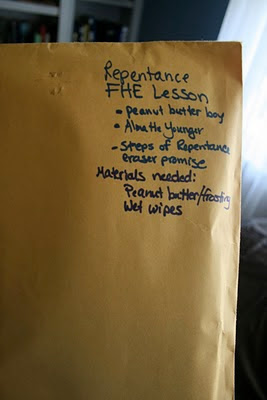 Repentance
FHE Lesson
• peanut butter boy
• Alma the Younger
• Steps of Repentance
eraser promise
Materials needed:
Peanut butter/frosting
Wet wipes